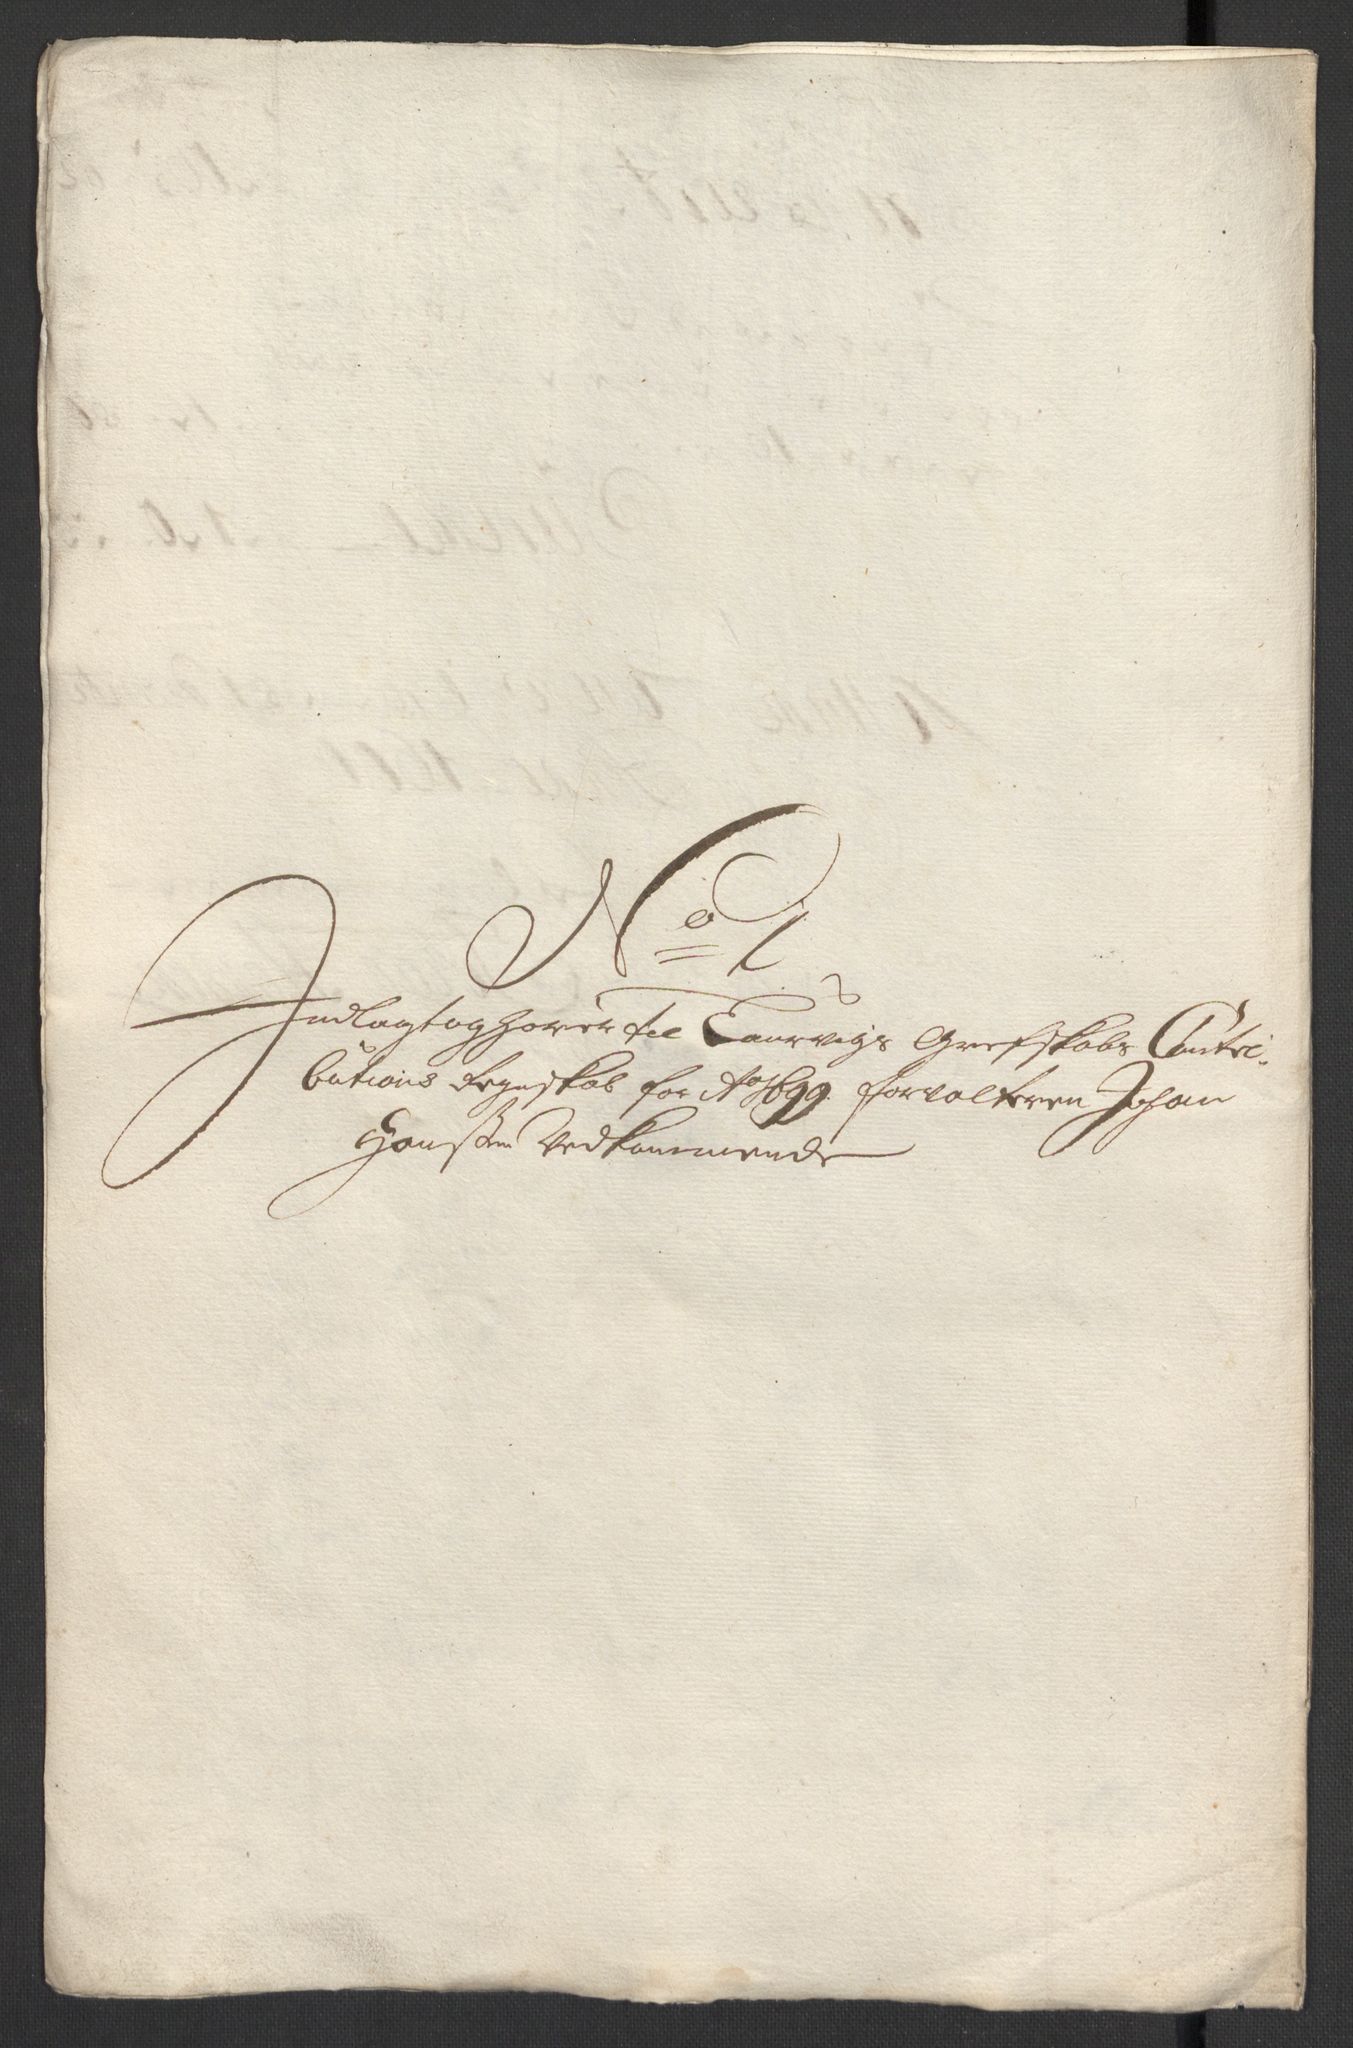 No 1
Indlagt og hører til Laurvigs Grefskabs Contri-
butions Regnskab for Ao 1699. forvalteren Johan
Hanssen Vedkommende